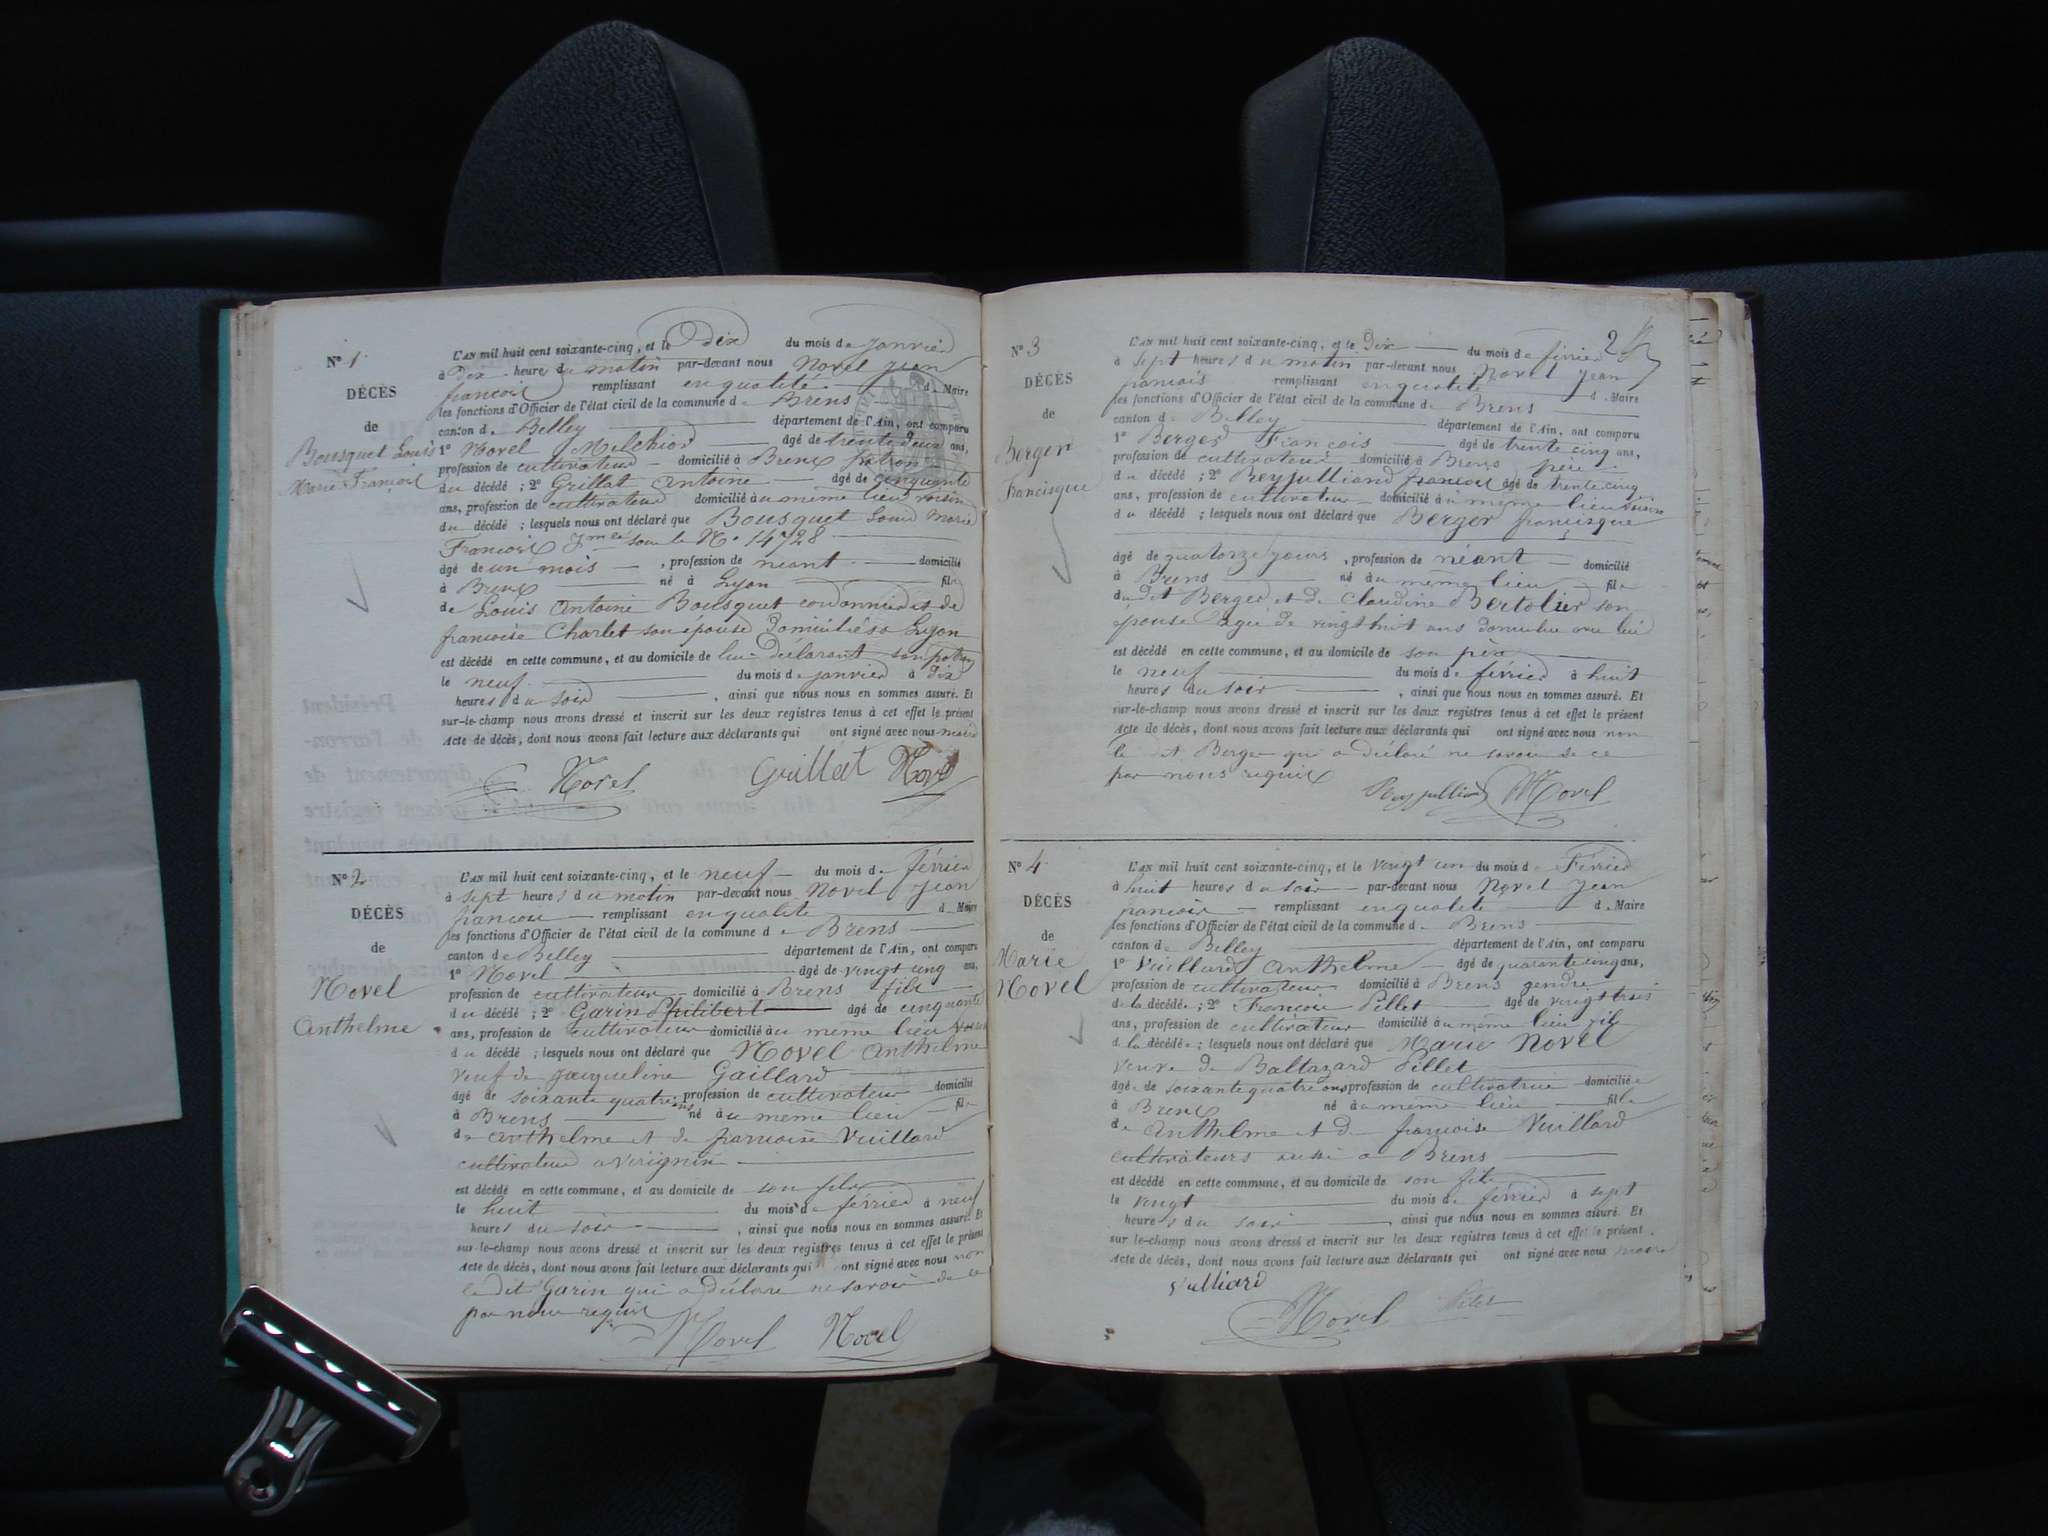 N° 1
DÉCÈS
de
Bousquet Louis
Marie François
L'AN mil huit cent soixante-cinq, et le Dix du mois de janvier
à Dix heure du matin par-devant nous Novel Jean
françois remplissant en qualité de Maire
les fonctions d'Officier de l'état civil de la commune de Brens
canton de Belley département de l'Ain, ont comparu
1° Novel Melchior âgé de trente deux ans,
profession de cultivateur domicilié à Brens patron
du décédé ; 2° Grillet Antoine âgé de cinquante
ans, profession de cultivateur domicilié au même lieu voisin
du décédé ; lesquels nous ont déclaré que Bousquet Louis Marie
François sous le N° 14728
âgé de un mois , profession de néant domicilié
à Brens né à Lyon fils
de Louis Antoine Bousquet cordonnier et de
françoise Charlet son épouse domiciliés à Lyon
est décédé en cette commune, et au domicile de lui déclarant son patron
le neuf du mois de janvier à dix
heures du soir , ainsi que nous nous en sommes assuré. Et
sur-le-champ nous avons dressé et inscrit sur les deux registres tenus à cet effet le présent
Acte de décès, dont nous avons fait lecture aux déclarants qui ont signé avec nous maire
Novel Grillet Novel
N° 2
DÉCÈS
de
Novel
Anthelme
L'AN mil huit cent soixante-cinq, et le neuf du mois de février
à sept heures du matin par-devant nous Novel Jean
francou remplissant en qualité de Maire
les fonctions d'Officier de l'état civil de la commune de Brens
canton de Belley département de l'Ain, ont comparu
1° Novel âgé de vingt cinq ans,
profession de cultivateur domicilié à Brens fils
du décédé ; 2° Garin Philibert âgé de cinquante
ans, profession de cultivateur domicilié au même lieu voisin
du décédé ; lesquels nous ont déclaré que Novel Anthelme
veuf de Jacqueline Gaillard
âgé de soixante quatre ans profession de cultivateur domicilié
à Brens né au même lieu fils
de Anthelme et de françoise Vuillard
cultivateur a virignin
est décédé en cette commune, et au domicile de son fils
le huit du mois de février à neuf
heures du soir , ainsi que nous nous en sommes assuré. Et
sur-le-champ nous avons dressé et inscrit sur les deux registres tenus à cet effet le présent
Acte de décès, dont nous avons fait lecture aux déclarants qui ont signé avec nous non
le dit Garin qui a déclaré ne savoir de ce
par nous requis
Novel Novel
2
N° 3
DÉCÈS
de
Berger
Francisque
L'AN mil huit cent soixante-cinq, et le Dix du mois de février
à sept heures du matin par-devant nous Novel Jean
francois remplissant en qualité de Maire
les fonctions d'Officier de l'état civil de la commune de Brens
canton de Belley département de l'Ain, ont comparu
1° Berger François âgé de trente cinq ans,
profession de cultivateur domicilié à Brens père
du décédé ; 2° Reyjulliand francois âgé de trente cinq
ans, profession de cultivateur domicilié au même lieu voisin
du décédé ; lesquels nous ont déclaré que Berger francisque
âgé de quatorze jours , profession de néant domicilié
à Brens né au même lieu fils
du dit Berger et de Claudine Bertolier son
épouse agée de vingt huit ans domiciliée avec lui
est décédé en cette commune, et au domicile de son père
le neuf du mois de février à huit
heures du soir , ainsi que nous nous en sommes assuré. Et
sur-le-champ nous avons dressé et inscrit sur les deux registres tenus à cet effet le présent
Acte de décès, dont nous avons fait lecture aux déclarants qui ont signé avec nous non
le dt Berger qui a déclaré ne savoir de ce
par nous requis
Reyjulliand Novel
N° 4
DÉCÈS
de
Marie
Novel
L'AN mil huit cent soixante-cinq, et le vingt un du mois de Février
à huit heures du soir par-devant nous Novel Jean
francois remplissant en qualité de Maire
les fonctions d'Officier de l'état civil de la commune de Brens
canton de Belley département de l'Ain, ont comparu
1° Vuillard Anthelme âgé de quarante cinq ans,
profession de cultivateur domicilié à Brens gendre
de la décédée ; 2° Francois Pillet âgé de vingt trois
ans, profession de cultivateur domicilié au même lieu fils
de la décédée ; lesquels nous ont déclaré que Marie Novel
veuve de Baltazard Pillet
âgée de soixante quatre ans profession de cultivatrice domiciliée
à Brens né au même lieu fille
de Anthelme et de françoise Vuillard
cultivateurs aussi a Brens
est décédé en cette commune, et au domicile de son fils
le vingt du mois de février à sept
heures du soir , ainsi que nous nous en sommes assuré. Et
sur-le-champ nous avons dressé et inscrit sur les deux registres tenus à cet effet le présent
Acte de décès, dont nous avons fait lecture aux déclarants qui ont signé avec nous maire
Vulliard
Novel Pilet